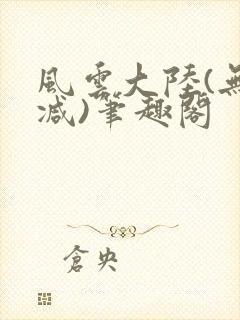 風雲大陸(無
减)筆趣閣
倉央